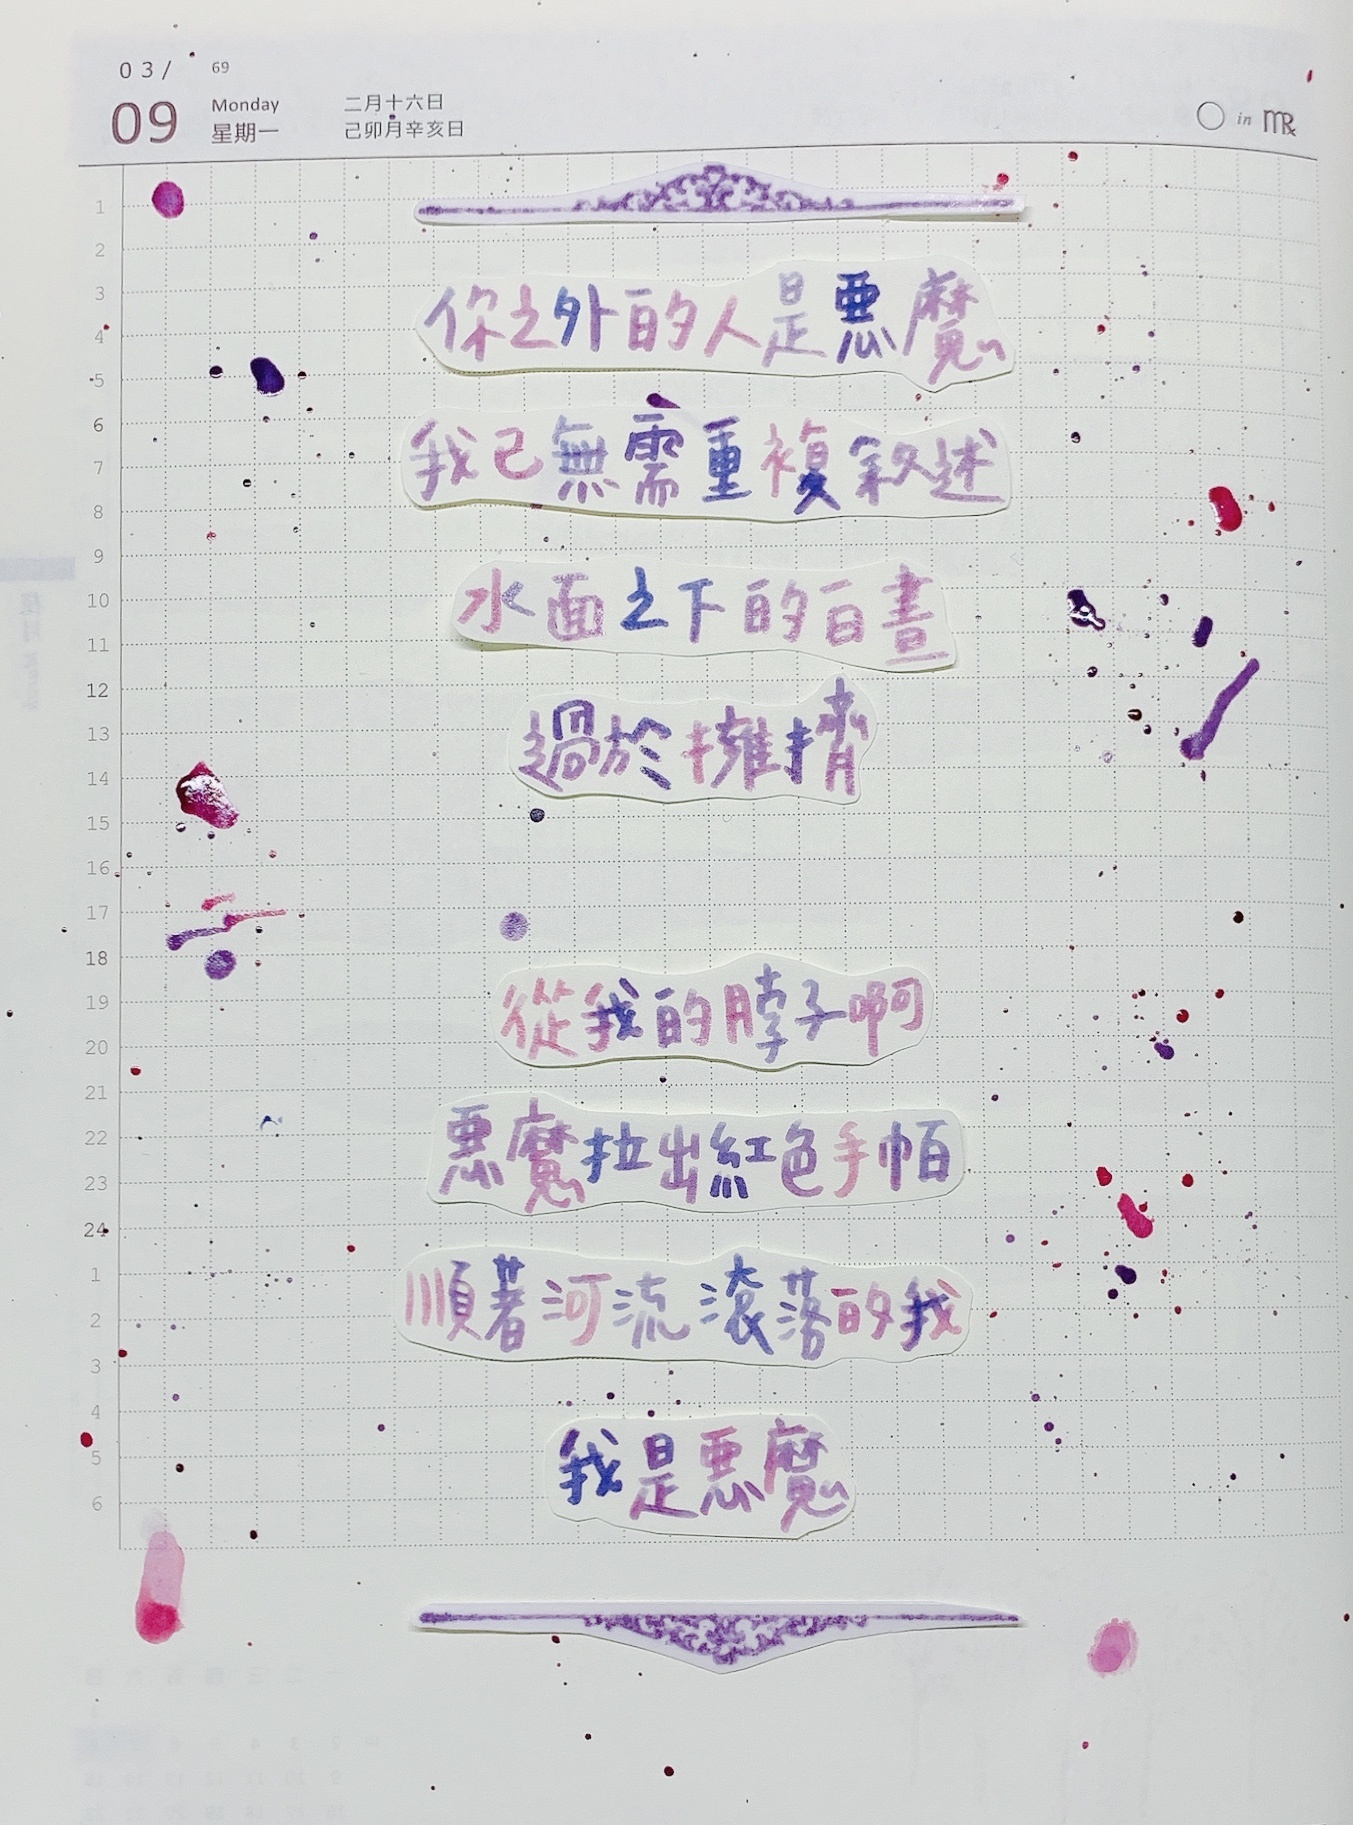 03/ 69
09 Monday 二月十六日
星期一 己卯月辛亥日
in ♏
1
2
3
4
5
6
7
8
9
10
11
12
13
14
15
16
17
18
19
20
21
22
23
24
1
2
3
4
5
6
你之外的人是惡魔
我已無需重複敘述
水面之下的白晝
過於擁擠
從我的脖子啊
惡魔拉出紅色手帕
順著河流滾落的我
我是惡魔